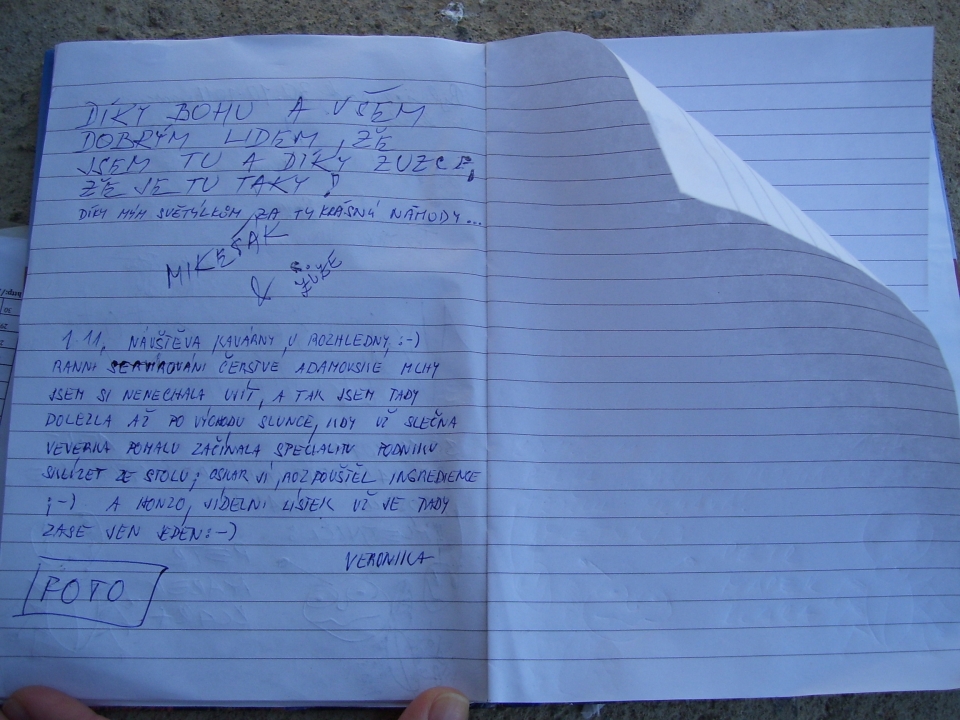 DÍKY BOHU A VŠEM
DOBRÝM LIDEM, ŽE
JSEM TU A DÍKY ZUZCE,
ŽE JE TU TAKY!
DÍKY MÝM SVĚTÝLKŮM, ZA TY KRÁSNÝ NÁHODY...
MIKEŠAK
&
ZÚŽE
1.11. NÁVŠTĚVA KAVÁRNY U ROZHLEDNY :-)
RANNÍ SERVÍROVÁNÍ ČERSTVÉ ADAMOVSKÉ MLHY
JSEM SI NENECHALA UJÍT, A TAK JSEM TADY
DOLEZLA AŽ PO VÝCHODU SLUNCE, KDY UŽ SLEČNA
VEVERKA POMALU ZAČÍNALA SPECIALITU PODNIKU
SKLÍZET ZE STOLU; OSKAR JÍ ROZPOUŠTĚL INGREDIENCE
;-) A HONZO, JÍDELNÍ LÍSTEK UŽ JE TADY
ZASE JEN JEDEN :-)
VERONIKA
FOTO